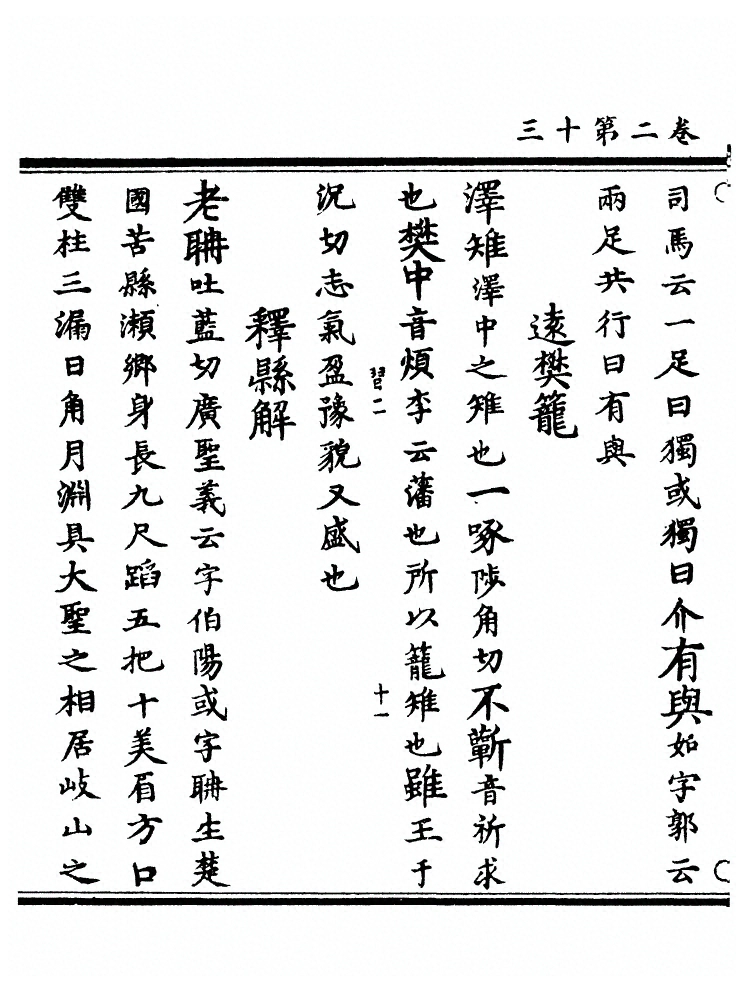 三十第二卷
司馬云一足曰獨或獨曰介有與如字郭云
兩足共行曰有與
遠樊籠
澤雉澤中之雉也一啄陟角切不蘄音祈求
也樊中音煩李云藩也所以籠雉也雖王于
習二
十一
況切志氣盈豫貌又盛也
釋縣解
老聃吐藍切廣聖義云字伯陽或字聃生楚
國苦縣瀬鄉身長九尺蹈五把十美眉方口
雙柱三漏日角月淵具大聖之相居岐山之